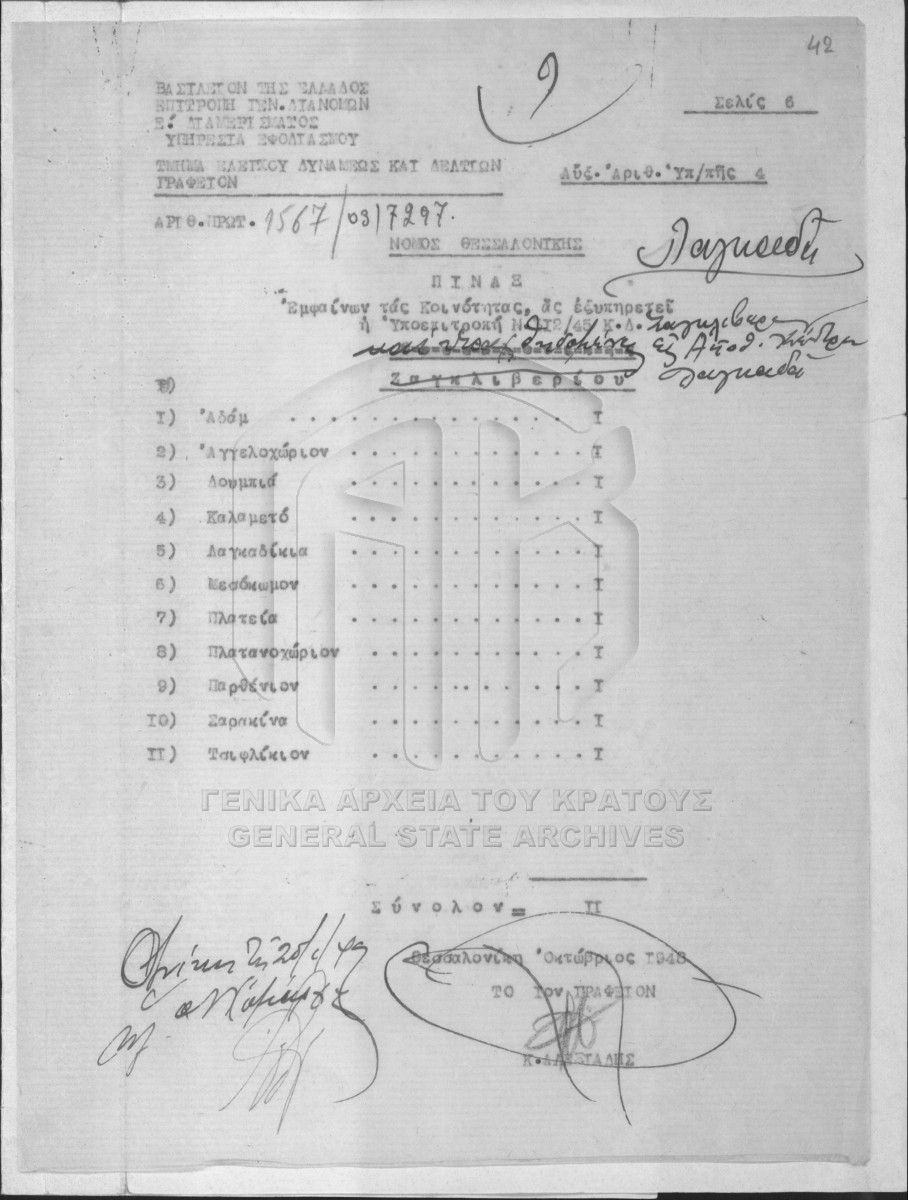 42
9
ΒΑΣΙΛΕΙΟΝ ΤΗΣ ΕΛΛΑΔΟΣ
ΕΠΙΤΡΟΠΗ ΓΕΝ.ΔΙΑΝΟΜΩΝ
Ε! ΔΙΑΜΕΡΙΣΜΑΤΟΣ
ΥΠΗΡΕΣΙΑ ΕΦΟΔΙΑΣΜΟΥ
ΤΜΗΜΑ ΕΛΕΓΧΟΥ ΔΥΝΑΜΕΩΣ ΚΑΙ ΔΕΛΤΙΩΝ
ΓΡΑΦΕΙΟΝ
Σελίς 6
Αὔξ.Ἀριθ.Ὑπ/πῆς 4
ΑΡΙΘ.ΠΡΩΤ. 1567/03/7297.
ΝΟΜΟΣ ΘΕΣΣΑΛΟΝΙΚΗΣ
Λαγκαδᾶ
ΠΙΝΑΞ
Ἐμφαίνων τάς Κοινότητας, ἅς ἐξυπηρετεῖ
ἡ Ὑποεπιτροπή Ν. 112/45 Κ.Δ.
Λαγκαδᾶ
Ζαγκλιβερίου
1) Ἀδάμ . . . . . . . . . . . . . . I
2) Ἀγγελοχώριον . . . . . . . . . . I
3) Δουμπιά . . . . . . . . . . . . I
4) Καλαμετό . . . . . . . . . . . . I
5) Λαγκαδίκια . . . . . . . . . . . I
6) Μεσόκωμον . . . . . . . . . . . I
7) Πλατεία . . . . . . . . . . . . I
8) Πλατανοχώριον . . . . . . . . . . I
9) Παρθένιον . . . . . . . . . . . I
I0) Σαρακίνα . . . . . . . . . . . I
II) Τσιφλίκιον . . . . . . . . . . . I
ΓΕΝΙΚΑ ΑΡΧΕΙΑ ΤΟΥ ΚΡΑΤΟΥΣ
GENERAL STATE ARCHIVES
Σύνολον= II
Θεσσαλονίκη Ὀκτώβριος I948
ΤΟ Ιον ΓΡΑΦΕΙΟΝ